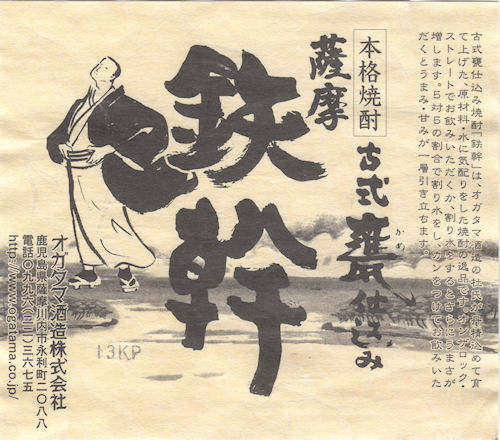 古式甕仕込み焼酎「鉄幹」は、オガタマ酒造の杜氏が精魂込めて育
て上げた、原材料・水に気配りをした焼酎の逸品です。オンザロック・
ストレートでお飲みいただくか、割り水をするとさらにうまさが
増します。5対5の割合で割り水をし、カンをつけてお飲みいた
だくとうまみ・甘みが一層引き立ちます。
本格焼酎
薩摩
古式甕仕込み
かめ
鉄幹
13KP
オガタマ酒造株式会社
鹿児島県薩摩川内市永利町二〇八八
電話〇九九六(二二)三六七五
http://www.ogatama.co.jp/